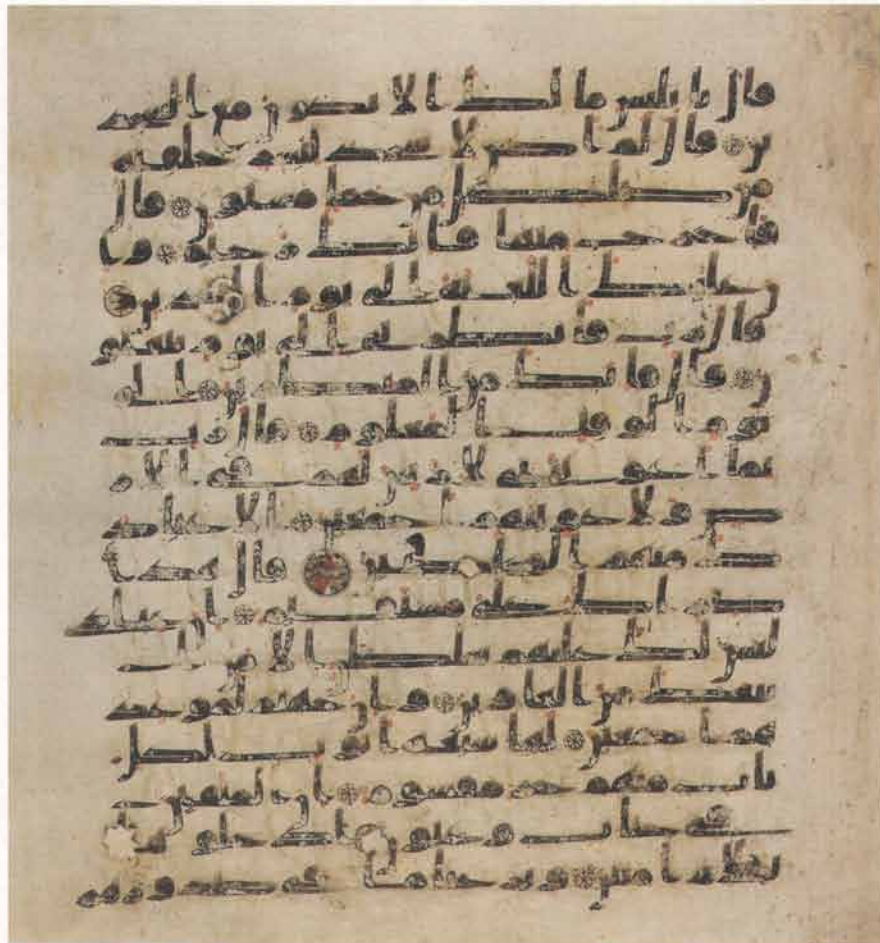 قال يابليس ما لك الا تكون مع السجد
ين قال لم اكن لاسجد لبشر خلقته
من صلصل من حما مسنون قال
فاخرج منها فانك رجيم وا
ن عليك اللعنة الى يوم الدين
قال رب فانظرني الى يوم يبعثو
ن قال فانك من المنظرين الى
يوم الوقت المعلوم قال رب
بما اغويتني لازينن لهم في الار
ض ولاغوينهم اجمعين الا عباد
ك منهم المخلصين قال هذا
صرط علي مستقيم ان عبادي
ليس لك عليهم سلطن الا من ا
تبعك من الغاوين وان جهنم لموعد
هم اجمعين لها سبعة ابوب لكل
باب منهم جز مقسوم ان المتقين
في جنات وعيون ادخلوها
بسلم امنين ونزعنا ما في صدورهم